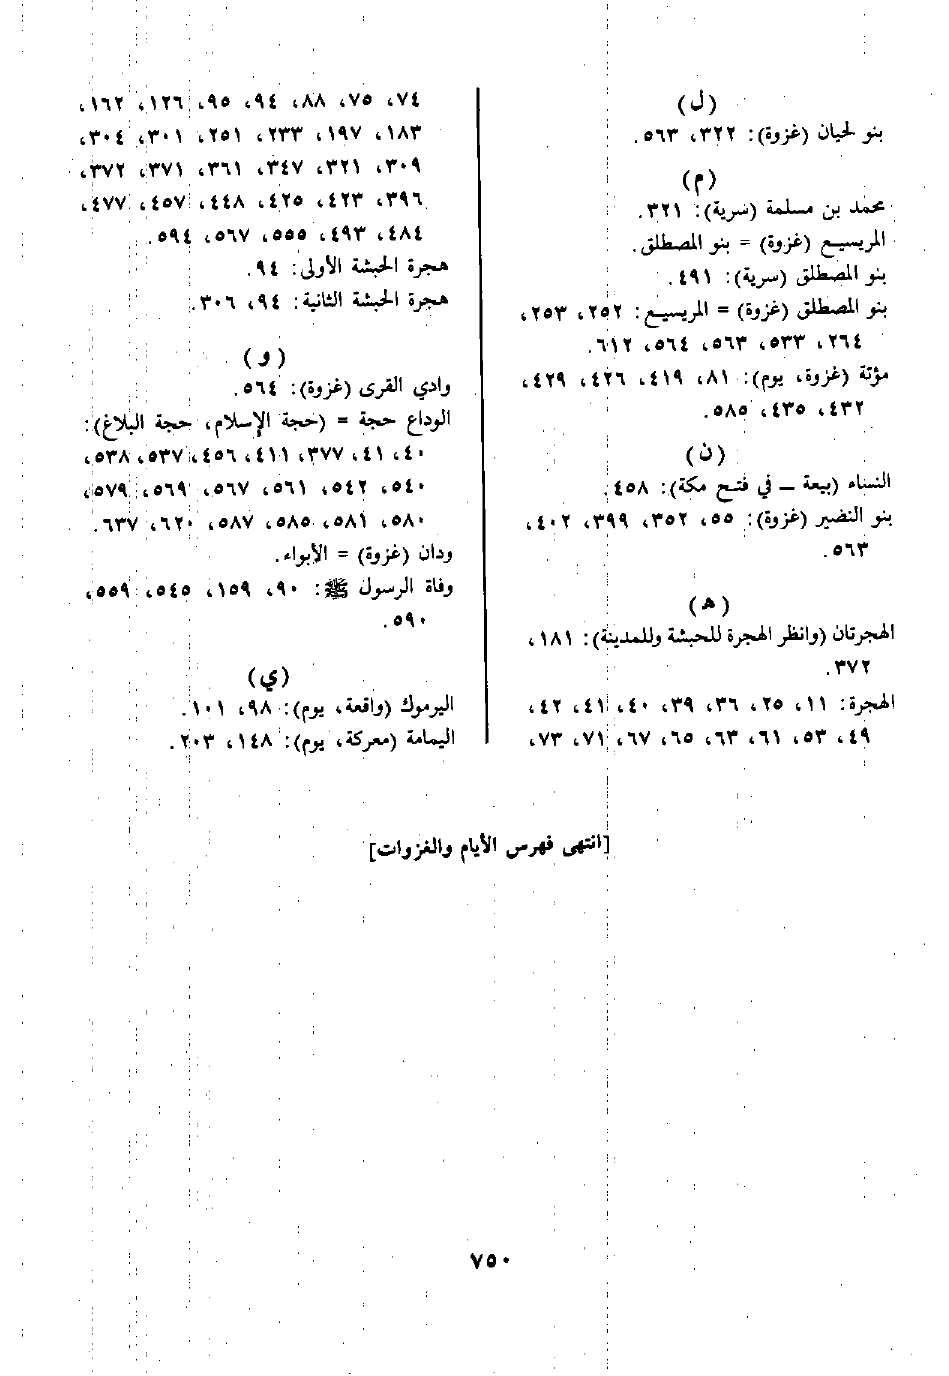 (ل)
بنو لحيان (غزوة): ٣٢٢، ٥٦٣.
(م)
محمد بن مسلمة (سرية): ٣٢١.
المريسيع (غزوة) = بنو المصطلق.
بنو المصطلق (سرية): ٤٩١.
بنو المصطلق (غزوة) = المريسيع: ٢٥٢، ٢٥٣،
٢٦٤، ٥٣٣، ٥٦٣، ٥٦٤، ٦١٢.
مؤتة (غزوة، يوم): ٨١، ٤١٩، ٤٢٦، ٤٢٩،
٤٣٢، ٤٣٥، ٥٨٥.
(ن)
النساء (بيعة ــ في فتح مكة): ٤٥٨.
بنو النضير (غزوة): ٥٥، ٣٥٢، ٣٩٩، ٤٠٢،
٥٦٣.
(هـ)
الهجرتان (وانظر الهجرة للحبشة وللمدينة): ١٨١،
٣٧٢.
الهجرة: ١١، ٢٥، ٣٦، ٣٩، ٤٠، ٤١، ٤٢،
٤٩، ٥٣، ٦١، ٦٣، ٦٥، ٦٧، ٧١، ٧٣،
٧٤، ٧٥، ٨٨، ٩٤، ٩٥، ١٢٦، ١٦٢،
١٨٣، ١٩٧، ٢٣٣، ٢٥١، ٣٠١، ٣٠٤،
٣٠٩، ٣٢١، ٣٤٧، ٣٦١، ٣٧١، ٣٧٢،
٣٩٦، ٤٢٣، ٤٢٥، ٤٤٨، ٤٥٧، ٤٧٧،
٤٨٤، ٤٩٣، ٥٥٥، ٥٦٧، ٥٩٤.
هجرة الحبشة الأولى: ٩٤.
هجرة الحبشة الثانية: ٩٤، ٣٠٦.
(و)
وادي القرى (غزوة): ٥٦٤.
الوداع حجة = (حجة الإسلام، حجة البلاغ):
٤٠، ٤١، ٣٧٧، ٤١١، ٤٥٦، ٥٣٧، ٥٣٨،
٥٤٠، ٥٤٢، ٥٦١، ٥٦٧، ٥٦٩، ٥٧٩،
٥٨٠، ٥٨١، ٥٨٥، ٥٨٧، ٦٢٠، ٦٣٧.
ودان (غزوة) = الأبواء.
وفاة الرسول ﷺ: ٩٠، ١٥٩، ٥٤٥، ٥٥٩،
٥٩٠.
(ي)
اليرموك (واقعة، يوم): ٩٨، ١٠١.
اليمامة (معركة، يوم): ١٤٨، ٢٠٣.
[انتهى فهرس الأيام والغزوات]
٧٥٠